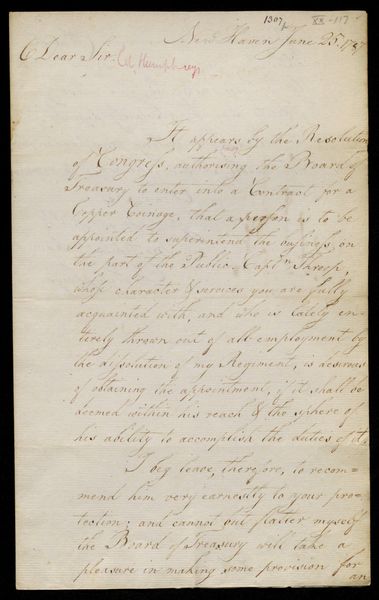 1307
XX-117
New Haven June 25. 1787
Dear Sir. Col. Humphreys
It appears by the Resolution
of Congress, authorising the Board of
Treasury to enter into a Contract for a
Copper Coinage, that a person is to be
appointed to superintend the business, on
the part of the Public. Captn Throop,
whose character & services you are fully
acquainted with, and who is lately en-
tirely thrown out of all employment by
the dissolution of my Regiment, is desirous
of obtaining the appointment, if it shall be
deemed within his reach & the sphere of
his ability to accomplish the duties of it.
I beg leave, therefore, to recom=
mend him very earnestly to your pro=
tection; and cannot but flatter myself
the Board of Treasury will take a
pleasure in making some provision for
an